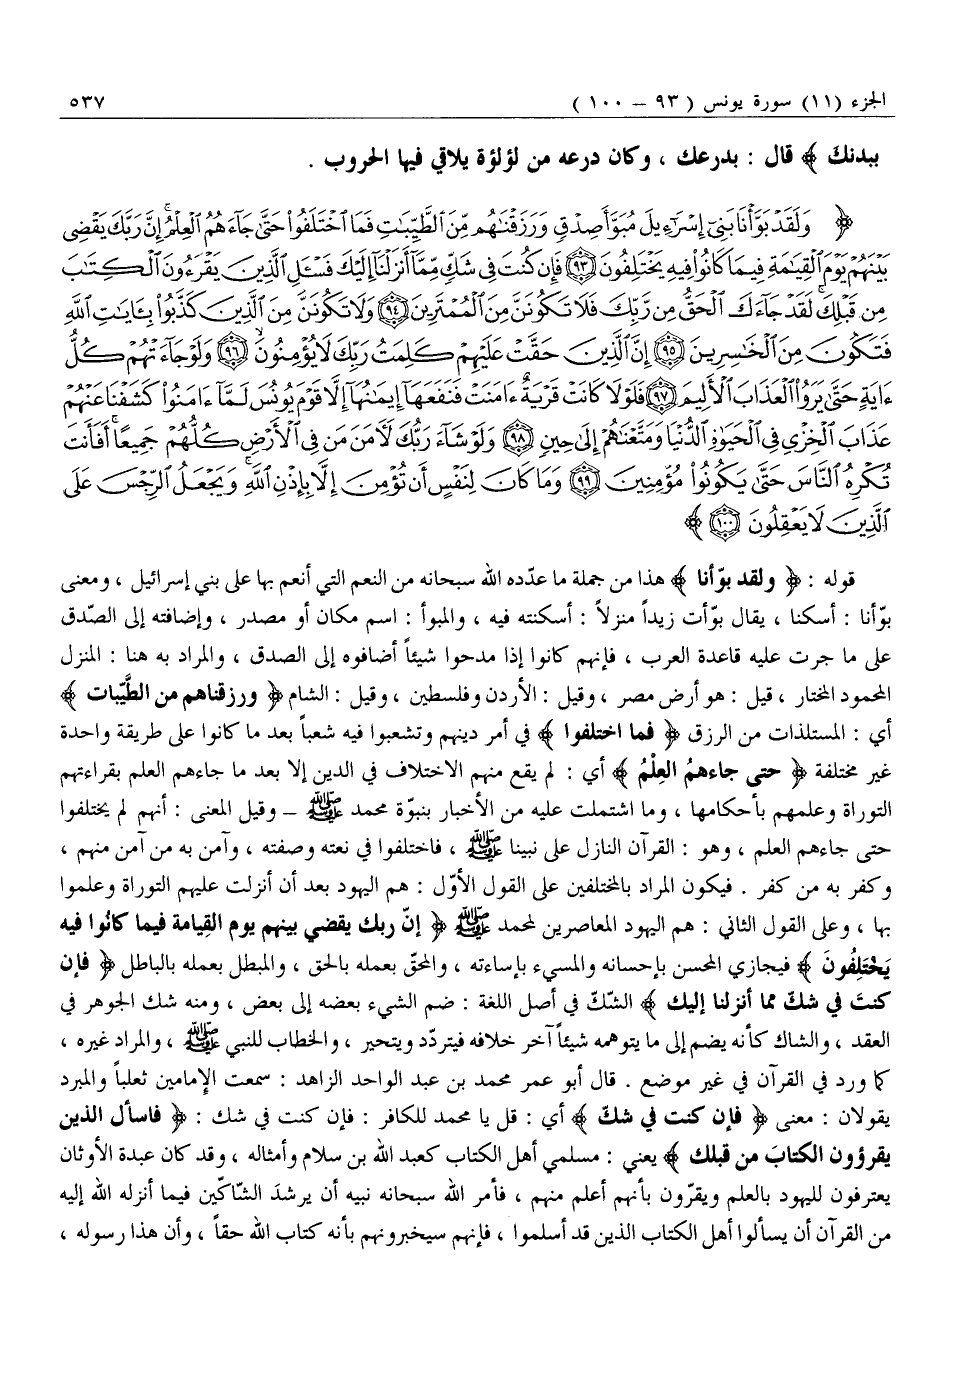 الجزء (١١) سورة يونس ( ٩٣ – ١٠٠ ) ٥٣٧
ببدنك ﴾ قال : بدرعك ، وكان درعه من لؤلؤة يلاقي فيها الحروب .
﴿ وَلَقَدْ بَوَّأْنَا بَنِىٓ إِسْرَٰٓءِيلَ مُبَوَّأَ صِدْقٍ وَرَزَقْنَٰهُم مِّنَ ٱلطَّيِّبَٰتِ فَمَا ٱخْتَلَفُوا۟ حَتَّىٰ جَآءَهُمُ ٱلْعِلْمُ ۚ إِنَّ رَبَّكَ يَقْضِى
بَيْنَهُمْ يَوْمَ ٱلْقِيَٰمَةِ فِيمَا كَانُوا۟ فِيهِ يَخْتَلِفُونَ ﴿٩٣﴾ فَإِن كُنتَ فِى شَكٍّ مِّمَّآ أَنزَلْنَآ إِلَيْكَ فَسْـَٔلِ ٱلَّذِينَ يَقْرَءُونَ ٱلْكِتَٰبَ
مِن قَبْلِكَ ۚ لَقَدْ جَآءَكَ ٱلْحَقُّ مِن رَّبِّكَ فَلَا تَكُونَنَّ مِنَ ٱلْمُمْتَرِينَ ﴿٩٤﴾ وَلَا تَكُونَنَّ مِنَ ٱلَّذِينَ كَذَّبُوا۟ بِـَٔايَٰتِ ٱللَّهِ
فَتَكُونَ مِنَ ٱلْخَٰسِرِينَ ﴿٩٥﴾ إِنَّ ٱلَّذِينَ حَقَّتْ عَلَيْهِمْ كَلِمَتُ رَبِّكَ لَا يُؤْمِنُونَ ﴿٩٦﴾ وَلَوْ جَآءَتْهُمْ كُلُّ
ءَايَةٍ حَتَّىٰ يَرَوُا۟ ٱلْعَذَابَ ٱلْأَلِيمَ ﴿٩٧﴾ فَلَوْلَا كَانَتْ قَرْيَةٌ ءَامَنَتْ فَنَفَعَهَآ إِيمَٰنُهَآ إِلَّا قَوْمَ يُونُسَ لَمَّآ ءَامَنُوا۟ كَشَفْنَا عَنْهُمْ
عَذَابَ ٱلْخِزْىِ فِى ٱلْحَيَوٰةِ ٱلدُّنْيَا وَمَتَّعْنَٰهُمْ إِلَىٰ حِينٍ ﴿٩٨﴾ وَلَوْ شَآءَ رَبُّكَ لَءَامَنَ مَن فِى ٱلْأَرْضِ كُلُّهُمْ جَمِيعًا ۚ أَفَأَنتَ
تُكْرِهُ ٱلنَّاسَ حَتَّىٰ يَكُونُوا۟ مُؤْمِنِينَ ﴿٩٩﴾ وَمَا كَانَ لِنَفْسٍ أَن تُؤْمِنَ إِلَّا بِإِذْنِ ٱللَّهِ ۚ وَيَجْعَلُ ٱلرِّجْسَ عَلَى
ٱلَّذِينَ لَا يَعْقِلُونَ ﴿١٠٠﴾ ﴾
قوله : ﴿ ولقد بوّأنا ﴾ هذا من جملة ما عدّده الله سبحانه من النعم التي أنعم بها على بني إسرائيل ، ومعنى
بوّأنا : أسكنا ، يقال بوّأت زيداً منزلاً : أسكنته فيه ، والمبوأ : اسم مكان أو مصدر ، وإضافته إلى الصّدق
على ما جرت عليه قاعدة العرب ، فإنهم كانوا إذا مدحوا شيئاً أضافوه إلى الصدق ، والمراد به هنا : المنزل
المحمود المختار ، قيل : هو أرض مصر ، وقيل : الأردن وفلسطين ، وقيل : الشام ﴿ ورزقناهم من الطَّيّبات ﴾
أي : المستلذات من الرزق ﴿ فما اختلفوا ﴾ في أمر دينهم وتشعبوا فيه شعباً بعد ما كانوا على طريقة واحدة
غير مختلفة ﴿ حتى جاءهمُ العِلْمُ ﴾ أي : لم يقع منهم الاختلاف في الدين إلا بعد ما جاءهم العلم بقراءتهم
التوراة وعلمهم بأحكامها ، وما اشتملت عليه من الأخبار بنبوّة محمد ﷺ – وقيل المعنى : أنهم لم يختلفوا
حتى جاءهم العلم ، وهو : القرآن النازل على نبينا ﷺ ، فاختلفوا في نعته وصفته ، وآمن به من آمن منهم ،
وكفر به من كفر . فيكون المراد بالمختلفين على القول الأوّل : هم اليهود بعد أن أنزلت عليهم التوراة وعلموا
بها ، وعلى القول الثاني : هم اليهود المعاصرين لمحمد ﷺ ﴿ إنّ ربك يقضي بينهم يوم القيامة فيما كانُوا فيه
يَخْتَلِفُونَ ﴾ فيجازي المحسن بإحسانه والمسيء بإساءته ، والمحقّ بعمله بالحق ، والمبطل بعمله بالباطل ﴿ فإن
كنتَ في شكّ مما أنزلنا إليك ﴾ الشّكّ في أصل اللغة : ضم الشيء بعضه إلى بعض ، ومنه شك الجوهر في
العقد ، والشاك كأنه يضم إلى ما يتوهمه شيئاً آخر خلافه فيتردّد ويتحير ، والخطاب للنبي ﷺ ، والمراد غيره ،
كما ورد في القرآن في غير موضع . قال أبو عمر محمد بن عبد الواحد الزاهد : سمعت الإمامين ثعلباً والمبرد
يقولان : معنى ﴿ فإن كنت في شكّ ﴾ أي : قل يا محمد للكافر : فإن كنت في شك : ﴿ فاسأل الذين
يقرؤون الكتابَ من قبلك ﴾ يعني : مسلمي أهل الكتاب كعبد الله بن سلام وأمثاله ، وقد كان عبدة الأوثان
يعترفون لليهود بالعلم ويقرّون بأنهم أعلم منهم ، فأمر الله سبحانه نبيه أن يرشدَ الشاكّين فيما أنزله الله إليه
من القرآن أن يسألوا أهل الكتاب الذين قد أسلموا ، فإنهم سيخبرونهم بأنه كتاب الله حقاً ، وأن هذا رسوله ،